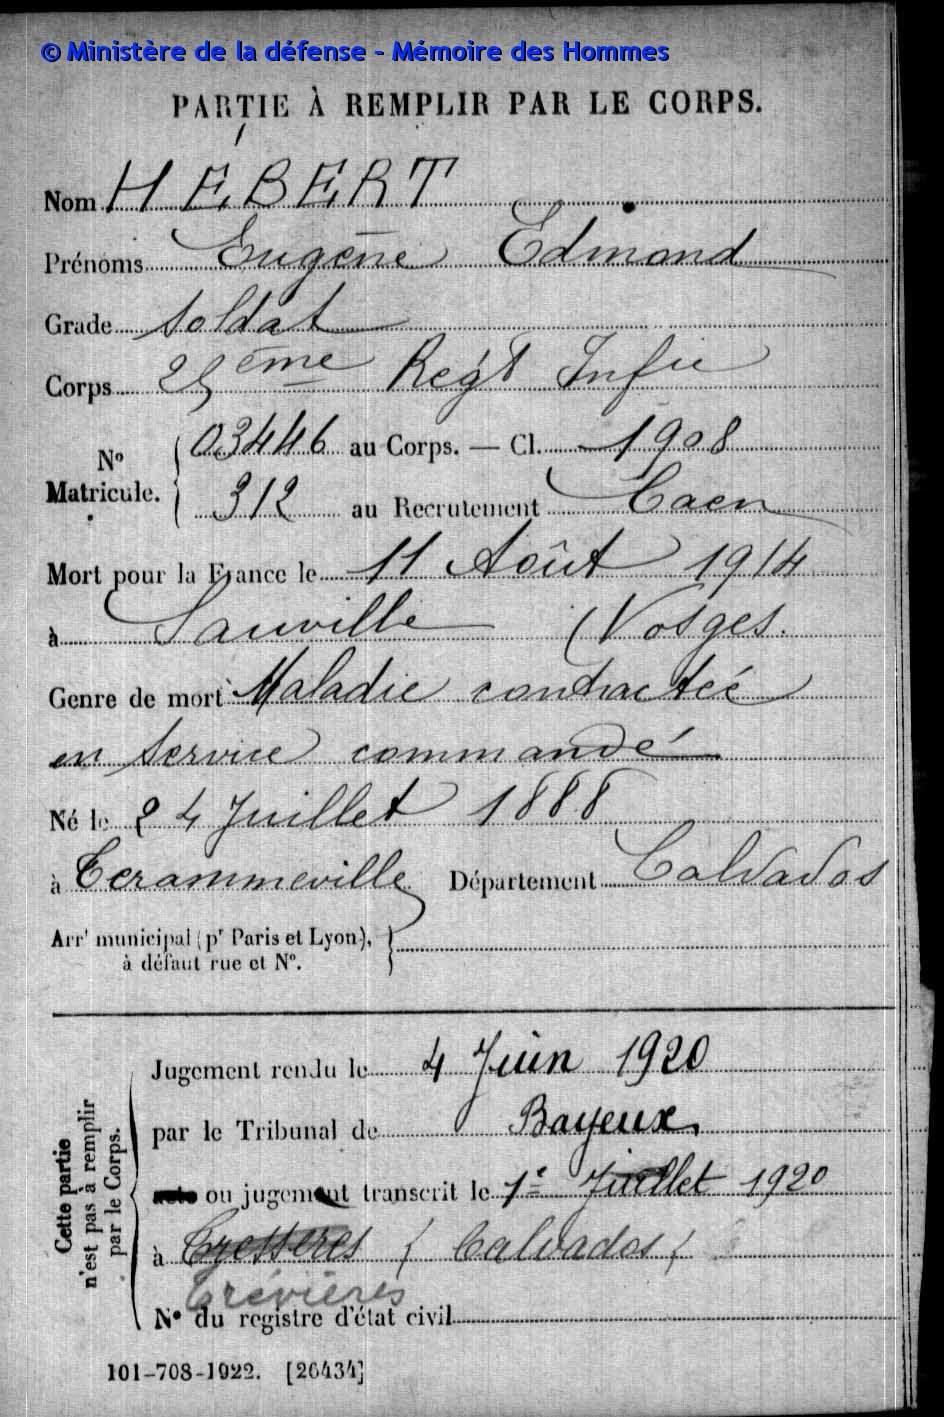 © Ministère de la défense - Mémoire des Hommes
PARTIE À REMPLIR PAR LE CORPS.
Nom HÉBERT
Prénoms Eugène Edmond
Grade Soldat
Corps 25ème Regt Infie
No Matricule. 03446 au Corps. — Cl. 1908
312 au Recrutement Caen
Mort pour la France le 11 Août 1914
à Sauville (Vosges.
Genre de mort Maladie contractée
en service commandé
Né le 24 Juillet 1888
à Ecrammeville Département Calvados
Arrt municipal (pr Paris et Lyon),
à défaut rue et No.
Cette partie n'est pas à remplir par le Corps.
Jugement rendu le 4 Juin 1920
par le Tribunal de Bayeux
acte ou jugement transcrit le 1er Juillet 1920
à (Calvados)
Trévières
No du registre d'état civil
101-708-1922. [26434]